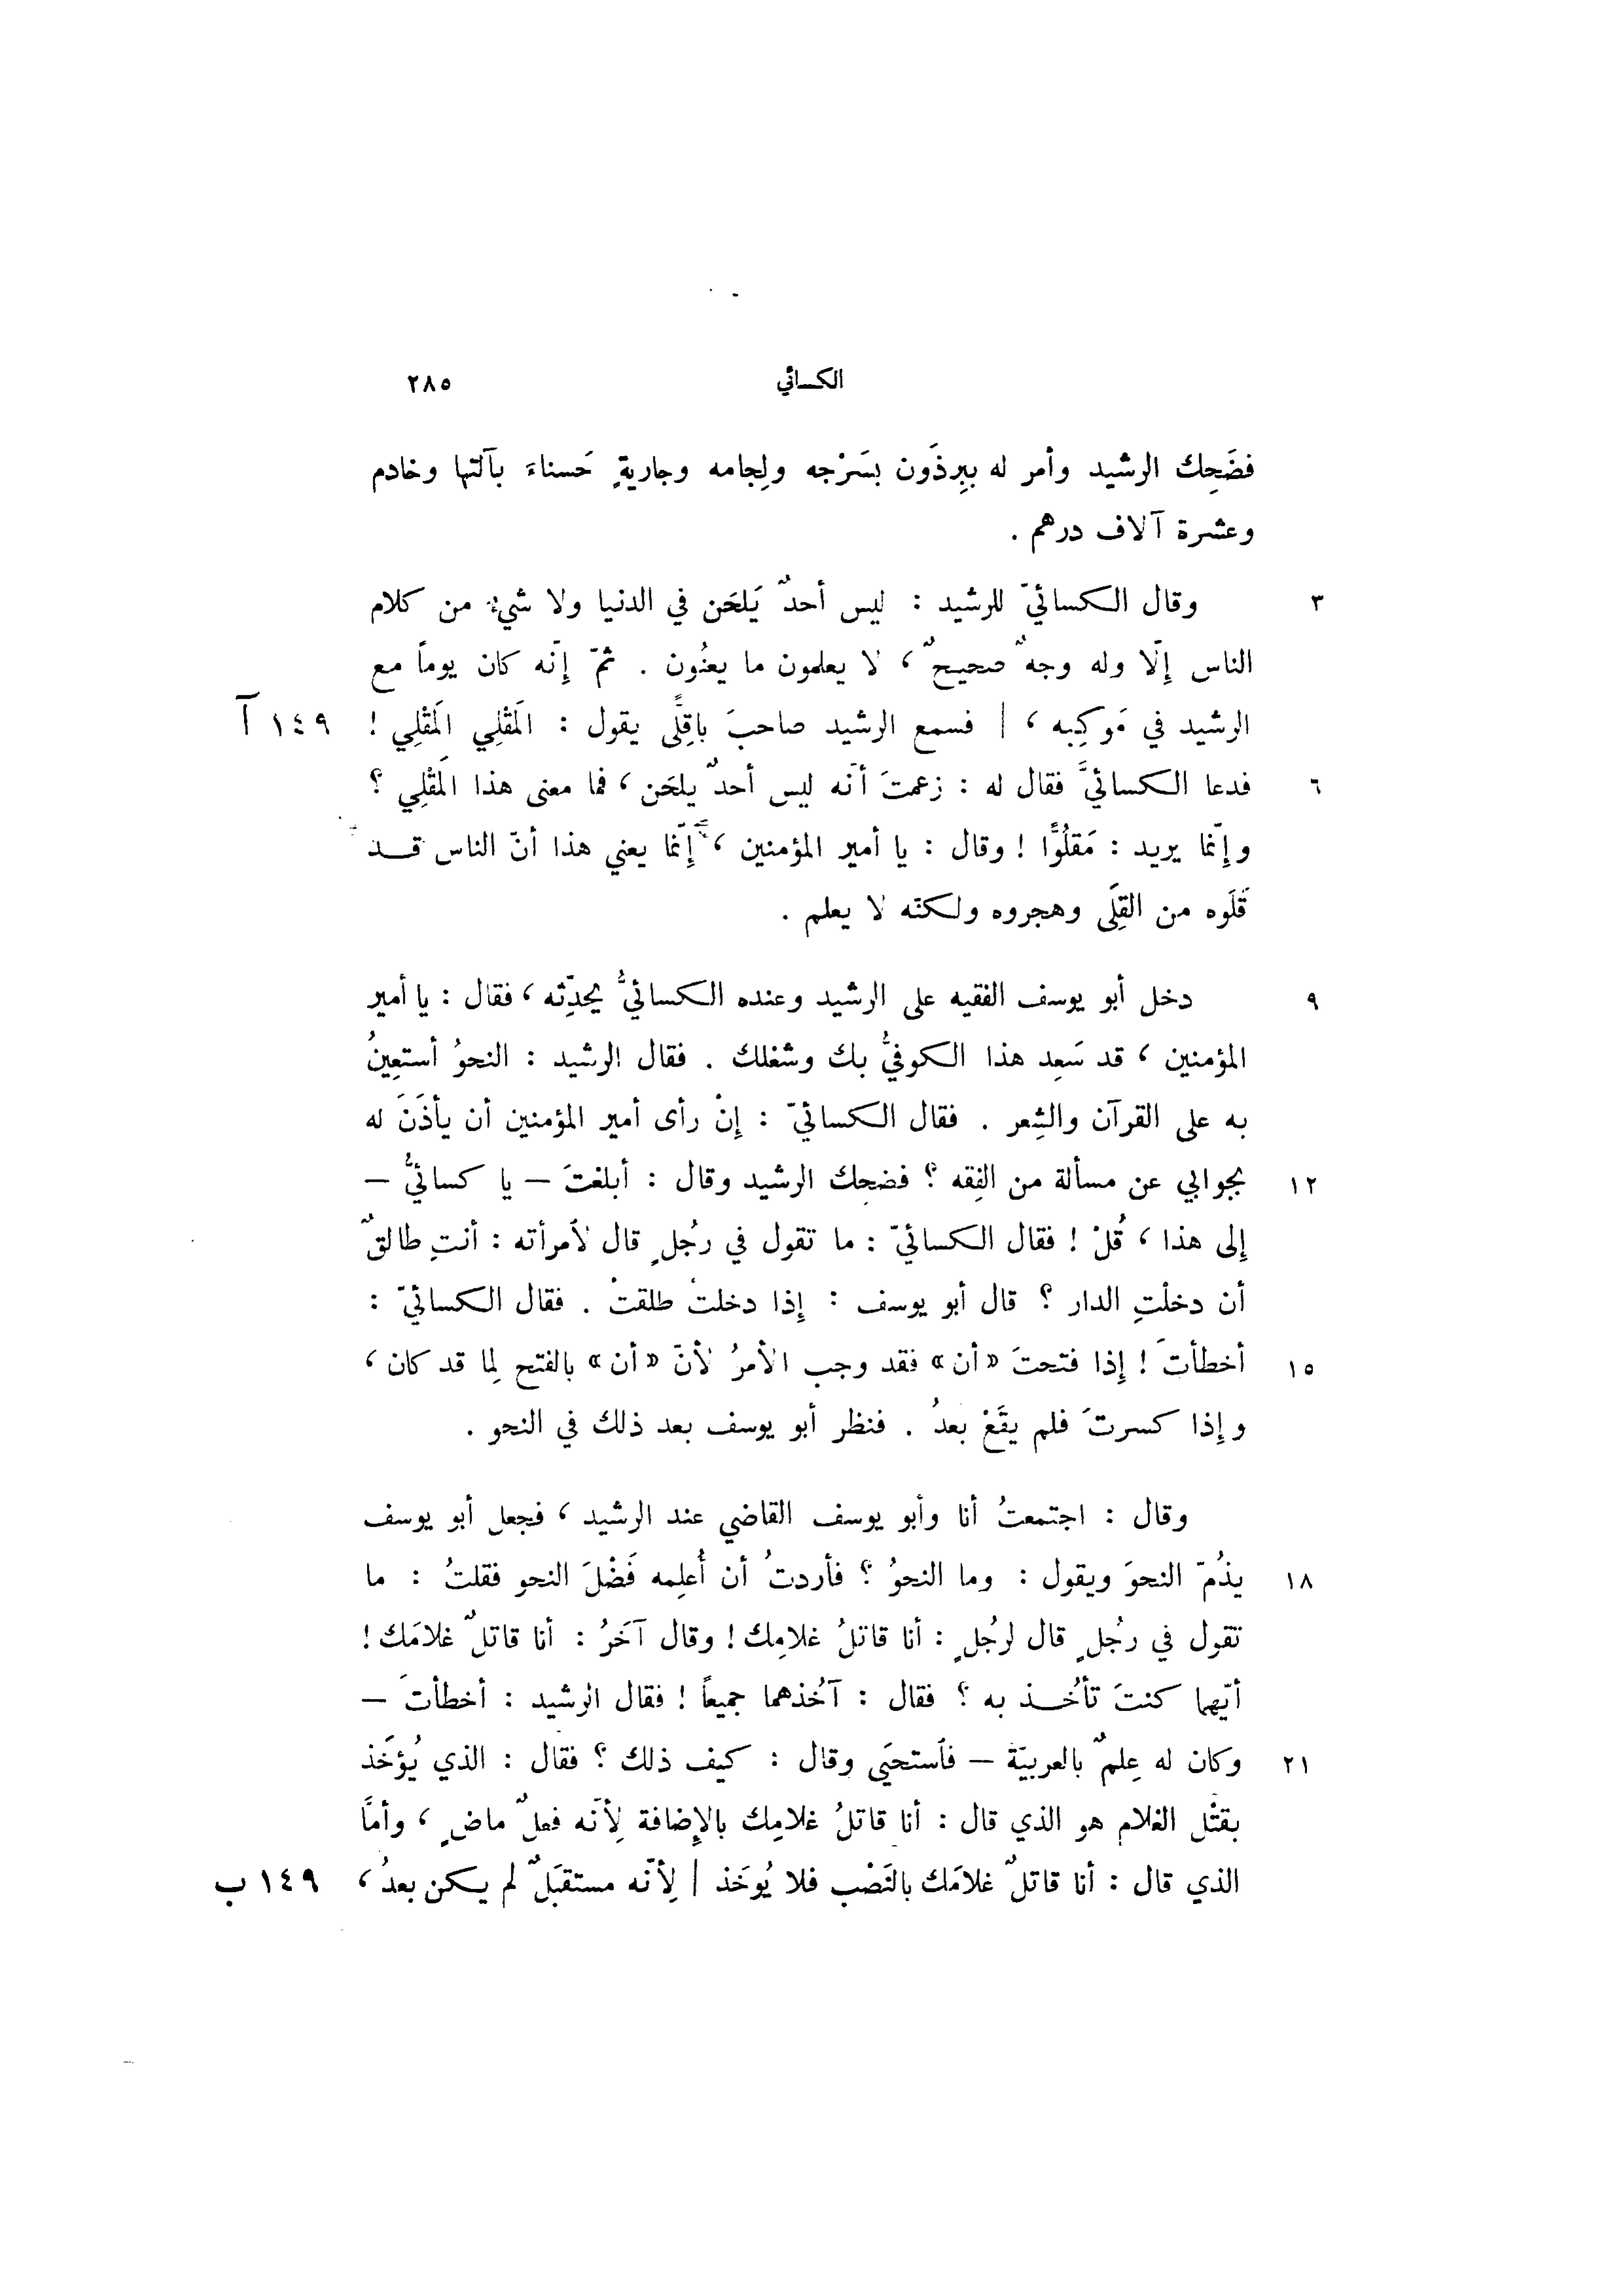 الكسائي ٢٨٥
فضَحِك الرشيد وأمر له ببِرذَون بسَرْجه ولِجامه وجاريةٍ حَسناءَ بآلتها وخادم
وعشرة آلاف درهم .
٣ وقال الكسائيّ للرشيد : ليس أحدٌ يَلحَن في الدنيا ولا شيءٌ من كلام
الناس إلّا وله وجهٌ صحيحٌ ، لا يعلمون ما يعنُون . ثمّ إنّه كان يوماً مع
الرشيد في مَوكِبه ، | فسمع الرشيد صاحبَ باقِلًّى يقول : المَقْلِي المَقْلِي ! ١٤٩ آ
٦ فدعا الكسائيَّ فقال له : زعمتَ أنّه ليس أحدٌ يلحَن ، فما معنى هذا المَقْلِي ؟
وإنّما يريد : مَقلُوًّا ! وقال : يا أمير المؤمنين ، إنّما يعني هذا أنّ الناس قد
قَلَوه من القِلَى وهجروه ولكنّه لا يعلم .
٩ دخل أبو يوسف الفقيه على الرشيد وعنده الكسائيُّ يحدِّثه ، فقال : يا أمير
المؤمنين ، قد سَعِد هذا الكوفيُّ بك وشغلك . فقال الرشيد : النحوُ أستعِينُ
به على القرآن والشِعر . فقال الكسائيّ : إنْ رأى أمير المؤمنين أن يأذَنَ له
١٢ بجوابي عن مسألة من الفِقه ؟ فضحِك الرشيد وقال : أبلغتَ – يا كسائيُّ –
إلى هذا ، قُلْ ! فقال الكسائيّ : ما تقول في رجُلٍ قال لأمرأته : أنتِ طالقٌ
أن دخلْتِ الدار ؟ قال أبو يوسف : إذا دخلتْ طلقتْ . فقال الكسائيّ :
١٥ أخطأتَ ! إذا فتحتَ «أن» فقد وجب الأمرُ لأنّ «أن» بالفتح لِما قد كان ،
وإذا كسرتَ فلم يقَعْ بعدُ . فنظر أبو يوسف بعد ذلك في النحو .
وقال : اجتمعتُ أنا وأبو يوسف القاضي عند الرشيد ، فجعل أبو يوسف
١٨ يذُمّ النحوَ ويقول : وما النحوُ ؟ فأردتُ أن أُعلِمه فَضْلَ النحو فقلتُ : ما
تقول في رجُلٍ قال لرجُلٍ : أنا قاتلُ غلامِك ! وقال آخَرُ : أنا قاتلٌ غلامَك !
أيّهما كنتَ تأخُذ به ؟ فقال : آخُذهما جميعاً ! فقال الرشيد : أخطأتَ –
٢١ وكان له عِلمٌ بالعربيّة – فأستحيَى وقال : كيف ذلك ؟ فقال : الذي يُؤخَذ
بقتْل الغلام هو الذي قال : أنا قاتلُ غلامِك بالإضافة لِأنّه فعلٌ ماضٍ ، وأمّا
الذي قال : أنا قاتلٌ غلامَك بالنَصْب فلا يُوخَذ | لِأنّه مستقبَلٌ لم يكن بعدُ ، ١٤٩ ب